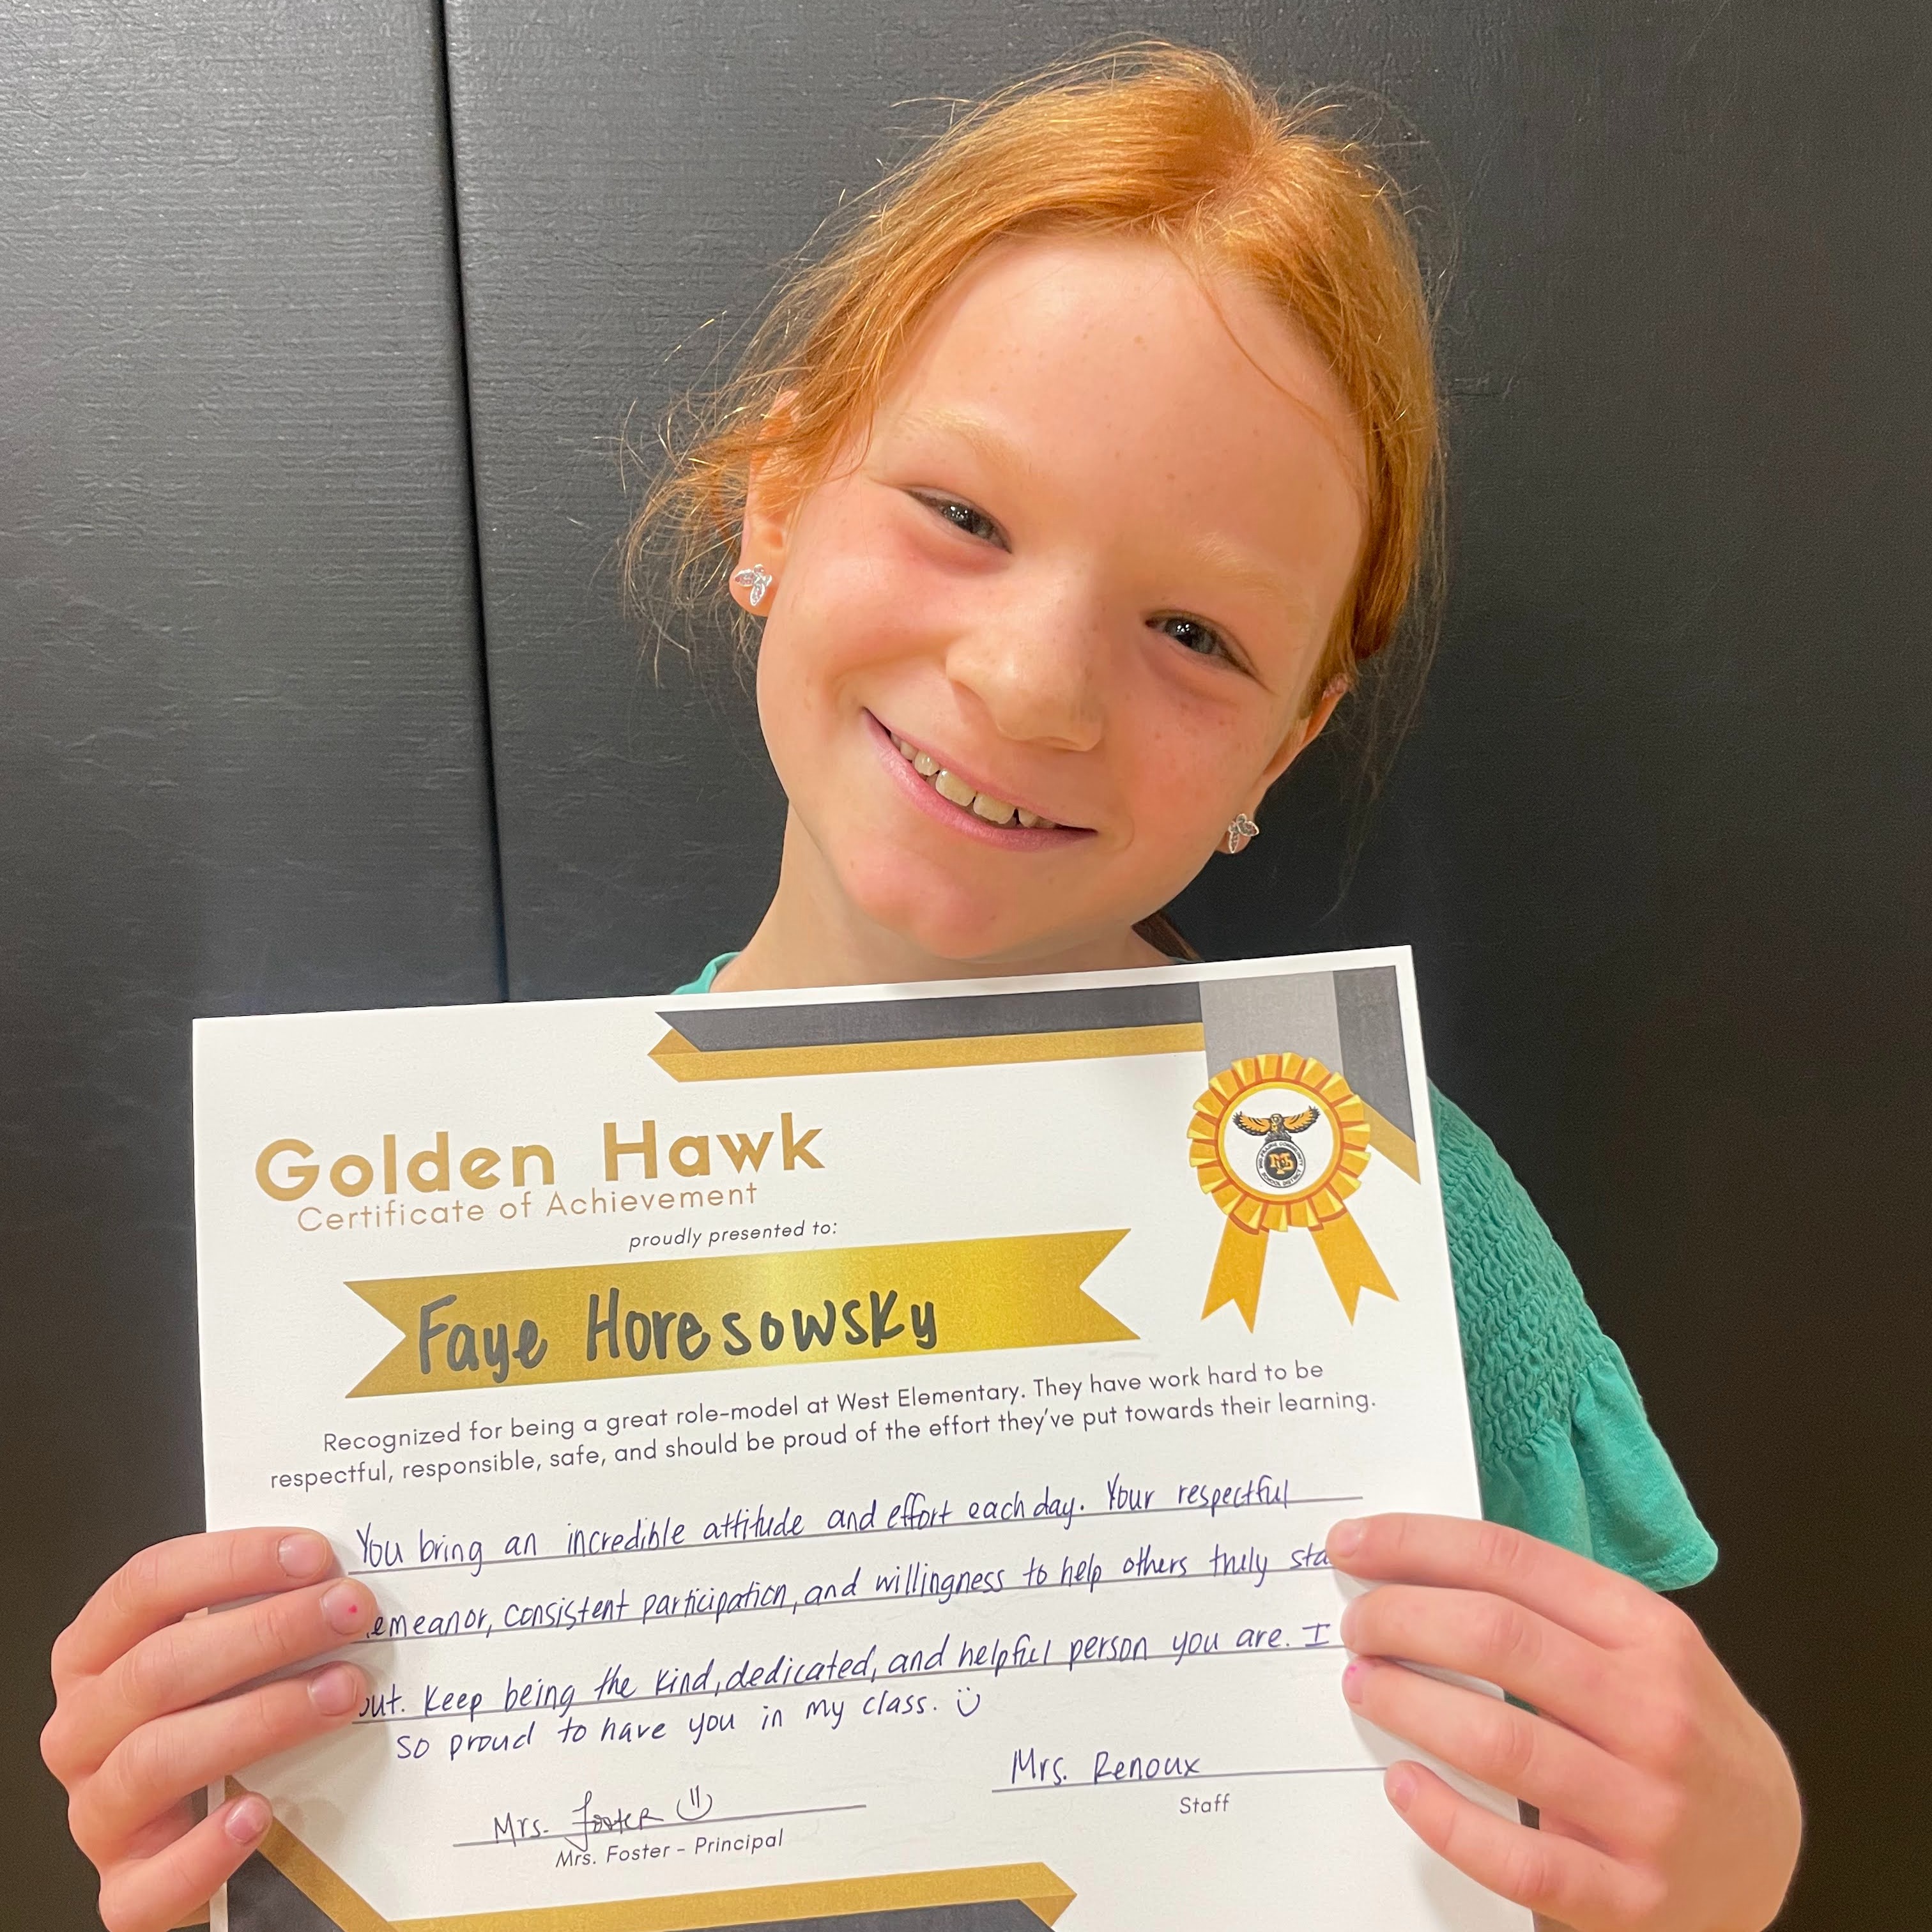 Golden Hawk
Certificate of Achievement
proudly presented to:
Faye Horesowsky
Recognized for being a great role-model at West Elementary. They have work hard to be
respectful, responsible, safe, and should be proud of the effort they've put towards their learning.
You bring an incredible attitude and effort each day. Your respectful
emeanor, consistent participation, and willingness to help others truly sta
out. Keep being the kind, dedicated, and helpful person you are. I
so proud to have you in my class.
Mrs. Renoux
Staff
Mrs. Foster
Mrs. Foster - Principal